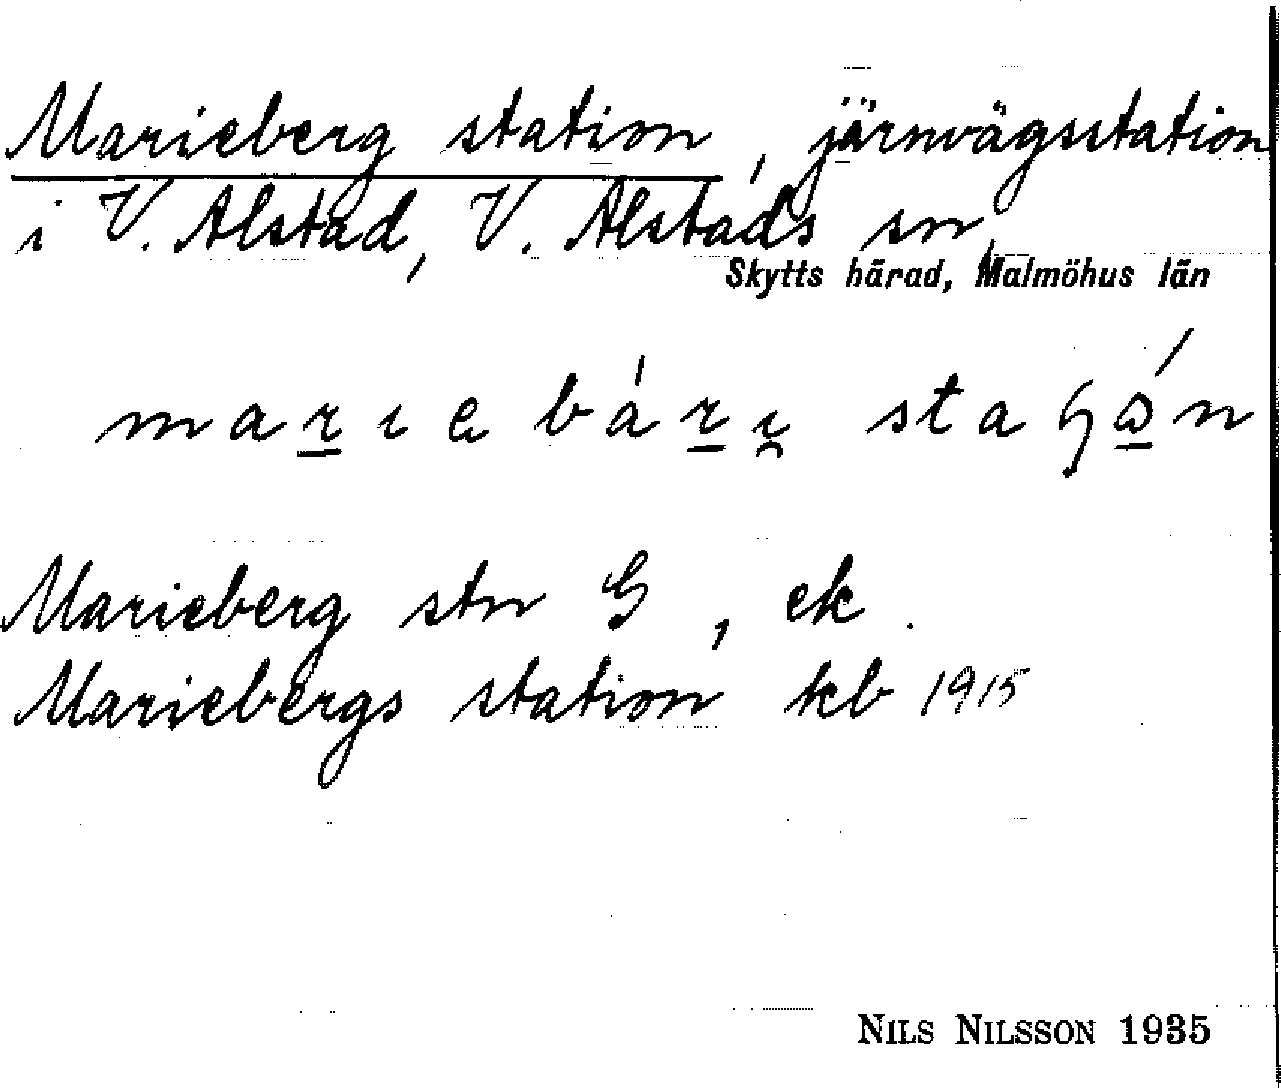 Marieberg station, järnvägsstation
i V. Alstad, V. Alstads sn,
Skytts härad, Malmöhus län
Marieberg stn G, ek.
Mariebergs station kb 1915
NILS NILSSON 1935